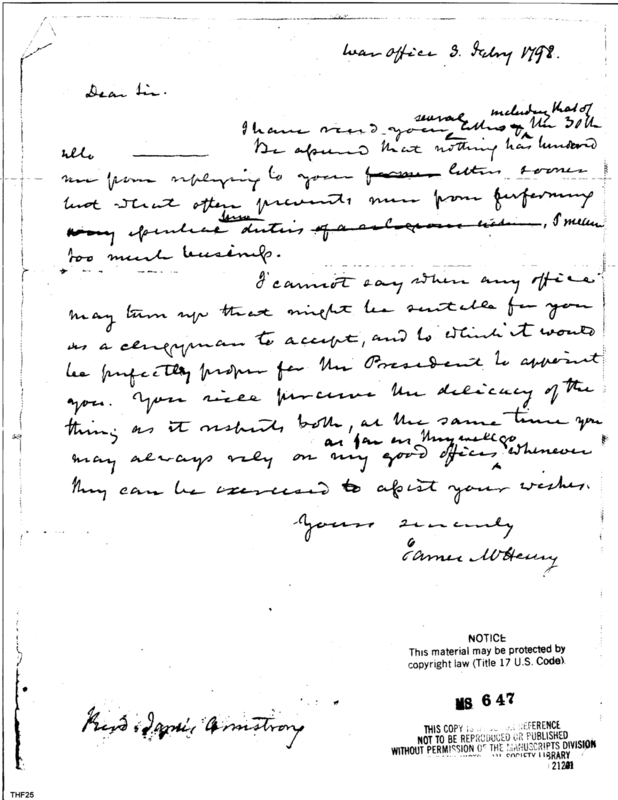 War Office 3. Feby 1798.
Dear Sir.
several including that of
I have recd. your letters of the 30th
ulto Be assured that nothing has hindered
me from replying to your former letters sooner
but what often prevents men from performing
very essential duties, I mean
too much business.
I cannot say when any office
may turn up that might be suitable for you
as a clergyman to accept, and to which it would
be perfectly proper for the President to appoint
you. You will perceive the delicacy of the
thing as it respects both, at the same time you
as far as they will go
may always rely on my good offices whenever
they can be exercised to assist your wishes.
Yours sincerely
James McHenry
NOTICE
This material may be protected by
copyright law (Title 17 U.S. Code)
MS 647
Revd. James Armstrong
THIS COPY IS REFERENCE
NOT TO BE REPRODUCED OR PUBLISHED
WITHOUT PERMISSION OF THE MANUSCRIPTS DIVISION
SOCIETY LIBRARY
21201
THF25